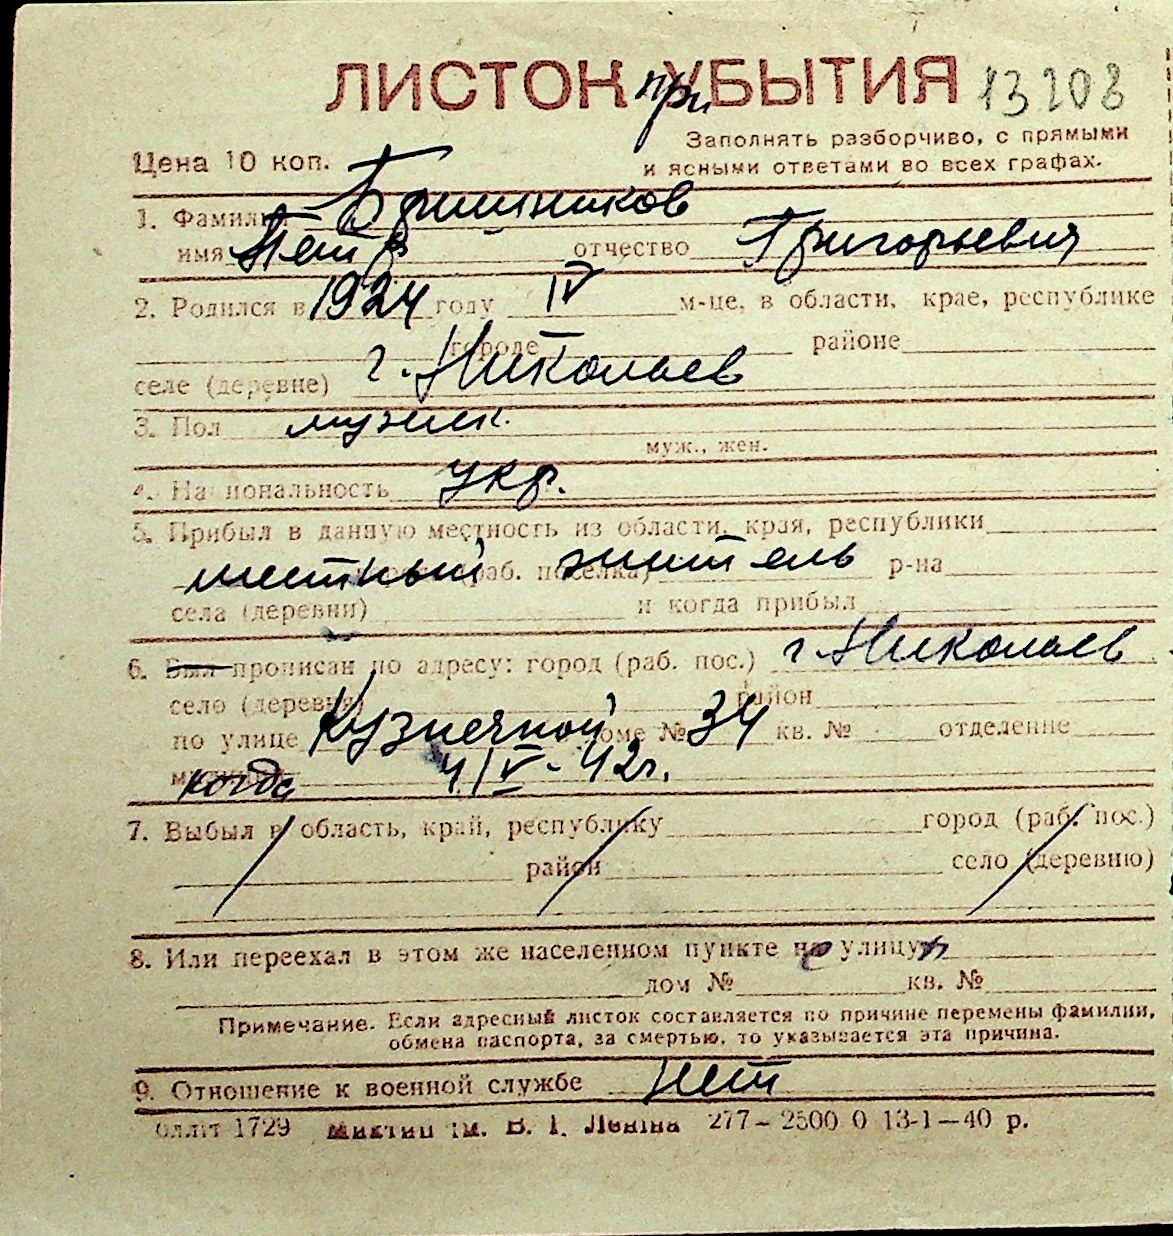 ЛИСТОК при УБЫТИЯ 13208
Заполнять разборчиво, с прямыми
Цена 10 коп. и ясными ответами во всех графах.
1. Фамилия
имя Петр отчество Григорьевич
2. Родился в 1924 году IV м-це, в области, крае, республике
городе районе
селе (деревне) г. Николаев
3. Пол мужск.
муж., жен.
4. Национальность укр.
5. Прибыл в данную местность из области, края, республики
местный житель (раб. поселка) р-на
села (деревни) и когда прибыл
6. Был прописан по адресу: город (раб. пос.) г. Николаев
село (деревня) район
по улице Кузнечной доме № 34 кв. № отделение
когда 4/V-42г.
7. Выбыл в область, край, республику город (раб. пос.)
район село (деревню)
8. Или переехал в этом же населенном пункте на улицу
дом № кв. №
Примечание. Если адресный листок составляется по причине перемены фамилии,
обмена паспорта, за смертью, то указывается эта причина.
9. Отношение к военной службе нет
1729 ім. В. І. Леніна 277–2500 0 13-1–40 р.